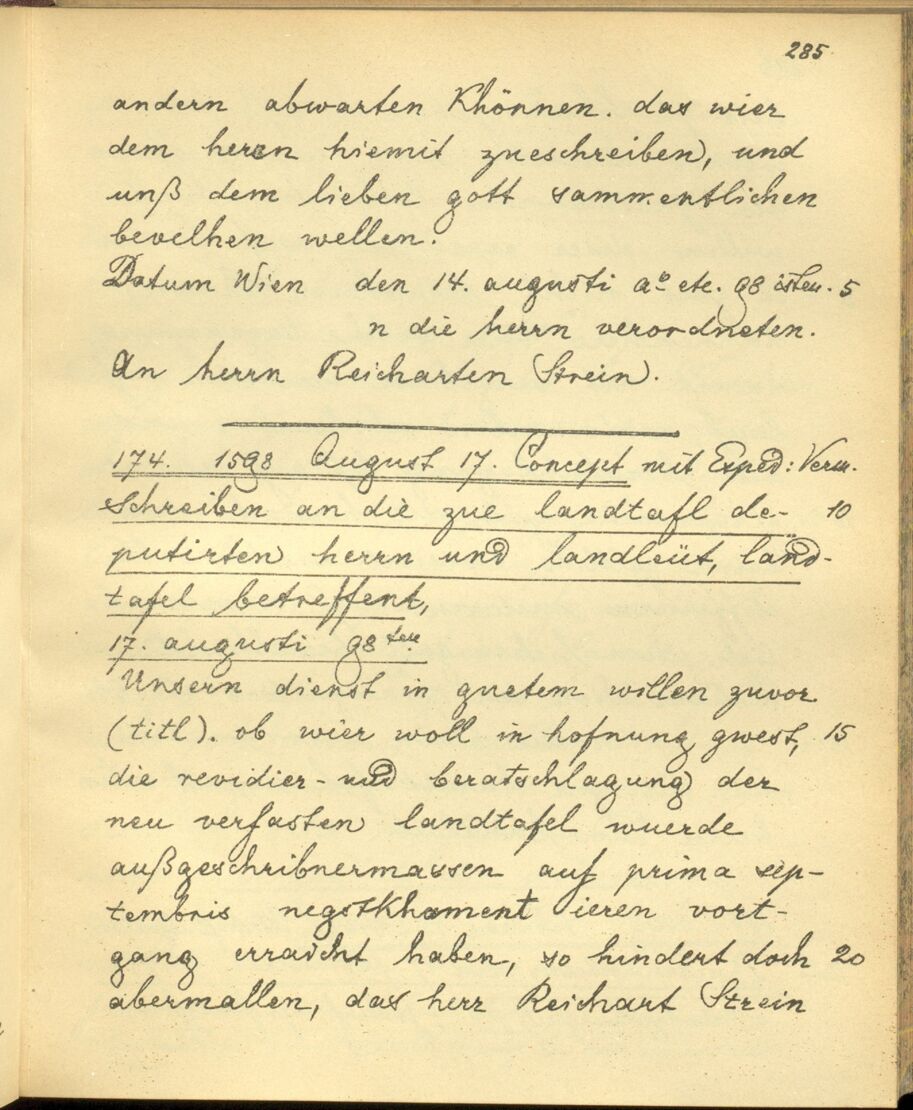 285
andern abwarten Khönnen. das wier
dem herrn hiemit zueschreiben, und
unß dem lieben gott sammentlichen
bevelhen wellen.
Datum Wien den 14. augusti aº etc. 98 isten. 5
n die herrn verordneten.
An herrn Reicharten Strein.
174. 1598 August 17. Concept mit Exped: Verm.
Schreiben an die zue landtafl de- 10
putirten herrn und landleüt, länd-
tafel betreffent,
17. augusti 98 ten
Unsern dienst in guetem willen zuvor
(titl). ob wier woll in hofnung gwest, 15
die revidier- und beratschlagung der
neu verfasten landtafel wuerde
außgeschribnermassen auf prima sep-
tembris negstkhoment ieren vort-
gang erraicht haben, so hindert doch 20
abermallen, das herr Reichart Strein